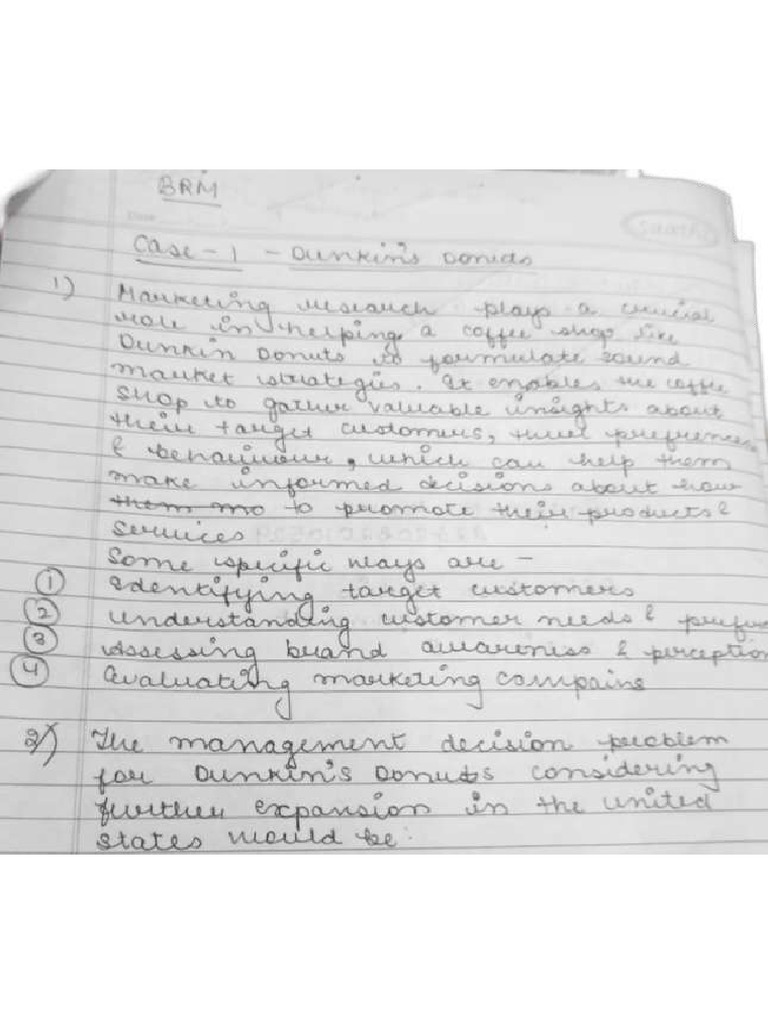 BRM
Case - 1 - Dunkin's Donuts
1) Marketing research plays a crucial
role in helping a coffee shop like
Dunkin Donuts to formulate sound
market strategies. It enables the coffee
shop to gather valuable insights about
their target customers, their preferences
& behaviour, which can help them
make informed decisions about how
them mo to promote their products &
services
Some specific ways are -
① Identifying target customers
② understanding customer needs &
③ Assessing brand awareness & perception
④ Evaluating marketing compains
2) The management decision problem
for Dunkin's Donuts considering
further expansion in the united
states would be: